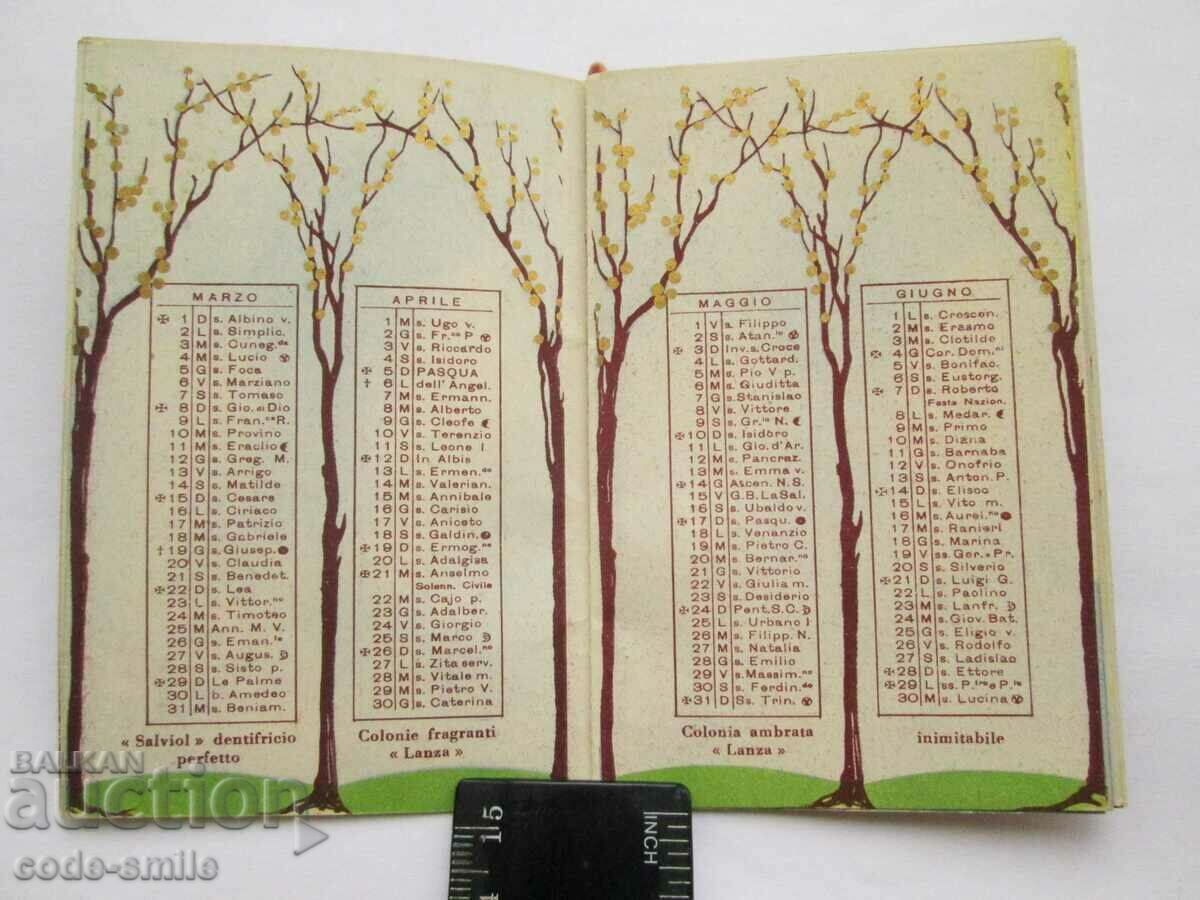 MARZO
✠ 1 D s. Albino v.
2 L s. Simplic.
3 M s. Cuneg.da
4 M s. Lucio
5 G s. Foca
6 V s. Marziano
7 S s. Tomaso
✠ 8 D s. Gio. di Dio
9 L s. Fran.ca R.
10 M s. Provino
11 M s. Eraclio
12 G s. Greg. M.
13 V s. Arrigo
14 S s. Matilde
✠ 15 D s. Cesare
16 L s. Ciriaco
17 M s. Patrizio
18 M s. Gabriele
† 19 G s. Giusep.
20 V s. Claudia
21 S s. Benedet.
✠ 22 D s. Lea
23 L s. Vittor.no
24 M s. Timoteo
25 M Ann. M. V.
26 G s. Eman.le
27 V s. Augus.
28 S s. Sisto p.
✠ 29 D Le Palme
30 L b. Amedeo
31 M s. Beniam.
« Salviol » dentifricio
perfetto
APRILE
1 M s. Ugo v.
2 G s. Fr.co P
3 V s. Riccardo
4 S s. Isidoro
✠ 5 D PASQUA
† 6 L dell' Angel.
7 M s. Ermann.
8 M s. Alberto
9 G s. Cleofe
10 V s. Terenzio
11 S s. Leone I
✠ 12 D In Albis
13 L s. Ermen.do
14 M s. Valerian.
15 M s. Annibale
16 G s. Carisio
17 V s. Aniceto
18 S s. Galdin.
✠ 19 D s. Ermog.no
20 L s. Adalgisa
✠ 21 M s. Anselmo
Solenn. Civile
22 M s. Cajo p.
23 G s. Adalber.
24 V s. Giorgio
25 S s. Marco
✠ 26 D s. Marcel.no
27 L s. Zita serv.
28 M s. Vitale m.
29 M s. Pietro V.
30 G s. Caterina
Colonie fragranti
« Lanza »
MAGGIO
1 V s. Filippo
2 S s. Atan.io
✠ 3 D Inv. s. Croce
4 L s. Gottard.
5 M s. Pio V p.
6 M s. Giuditta
7 G s. Stanislao
8 V s. Vittore
9 S s. Gr.io N.
✠ 10 D s. Isidoro
11 L s. Gio. d'Ar.
12 M s. Pancraz.
13 M s. Emma v.
✠ 14 G Ascen. N.S.
15 V G.B. La Sal.
16 S s. Ubaldo v.
✠ 17 D s. Pasqu.
18 L s. Venanzio
19 M s. Pietro C.
20 M s. Bernar.no
21 G s. Vittorio
22 V s. Giulia m.
23 S s. Desiderio
✠ 24 D Pent. S.C.
25 L s. Urbano I
26 M s. Filipp. N.
27 M s. Natalia
28 G s. Emilio
29 V s. Massim.no
30 S s. Ferdin.do
✠ 31 D Ss. Trin.
Colonia ambrata
« Lanza »
GIUGNO
1 L s. Crescen.
2 M s. Erasmo
3 M s. Clotilde
✠ 4 G Cor. Dom.ni
5 V s. Bonifac.
6 S s. Eustorg.
✠ 7 D s. Roberto
Festa Nazion.
8 L s. Medar.
9 M s. Primo
10 M s. Diana
11 G s. Barnaba
12 V s. Onofrio
13 S s. Anton. P.
✠ 14 D s. Eliseo
15 L s. Vito m.
16 M s. Aurel.no
17 M s. Ranieri
18 G s. Marina
19 V ss. Ger. e Pr.
20 S s. Silverio
✠ 21 D s. Luigi G.
22 L s. Paolino
23 M s. Lanfr.
24 M s. Giov. Bat.
25 G s. Eligio v.
26 V s. Rodolfo
27 S s. Ladislao
✠ 28 D s. Ettore
✠ 29 L ss. P.tro e P.lo
30 M s. Lucina
inimitabile
15
INCH
BALKAN
auction
code-smile